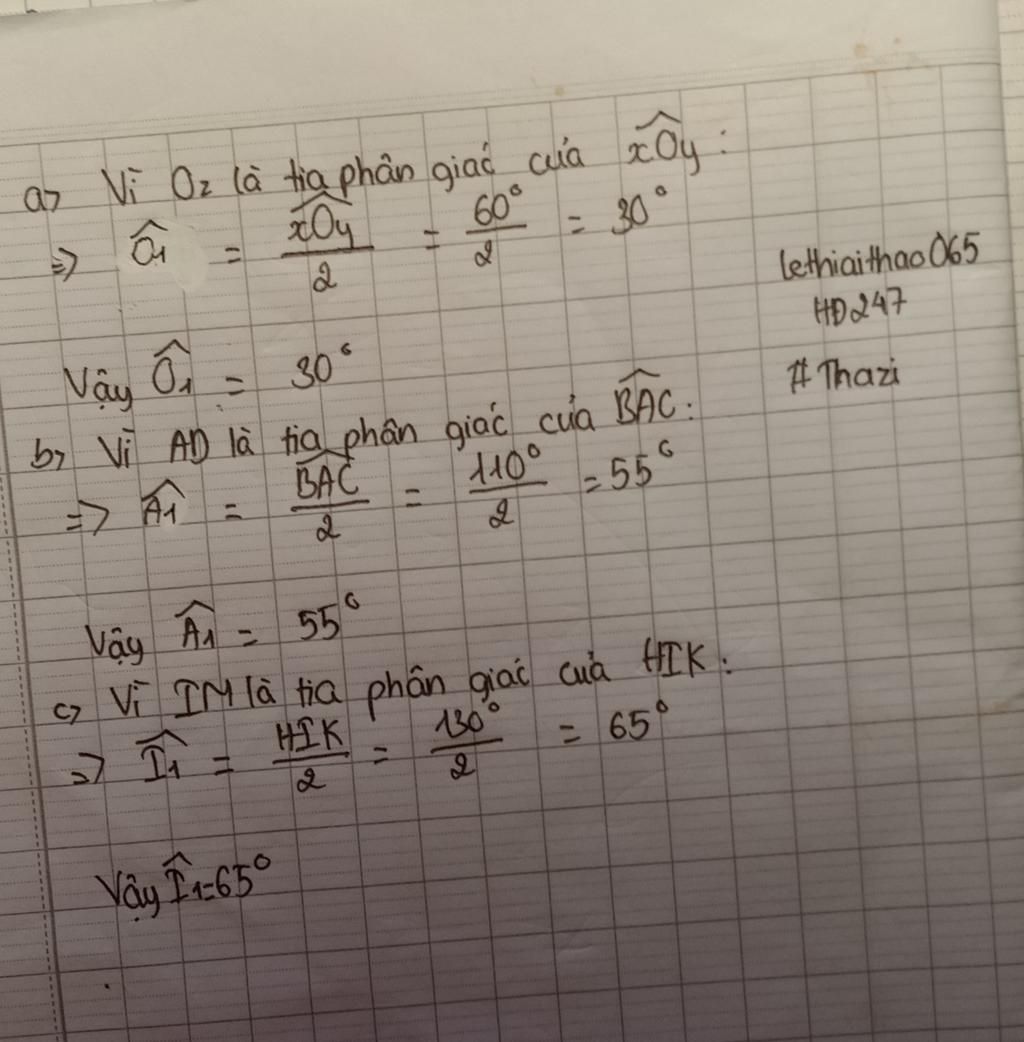 a) Vì Oz là tia phân giác của $\widehat{xOy}$:
=> $\widehat{O_1}$ = $\frac{\widehat{xOy}}{2}$ = $\frac{60°}{2}$ = 30°
lethiaithao065
HD247
Vậy $\widehat{O_1}$ = 30°
#Thazi
b) Vì AD là tia phân giác của $\widehat{BAC}$:
=> $\widehat{A_1}$ = $\frac{\widehat{BAC}}{2}$ = $\frac{110°}{2}$ = 55°
Vậy $\widehat{A_1}$ = 55°
c) Vì IM là tia phân giác của HIK:
=> $\widehat{I_1}$ = $\frac{HIK}{2}$ = $\frac{130°}{2}$ = 65°
Vậy $\widehat{I_1}$=65°